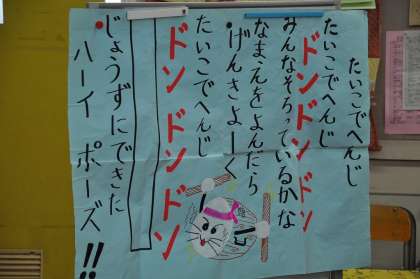 たいこでへんじ
たいこでへんじ
ドンドンドン
みんなそろっているかな
なまえをよんだら
げんきよーく
たいこでへんじ
ドンドンドン
じょうずにできた
ハーイ ポーズ!!